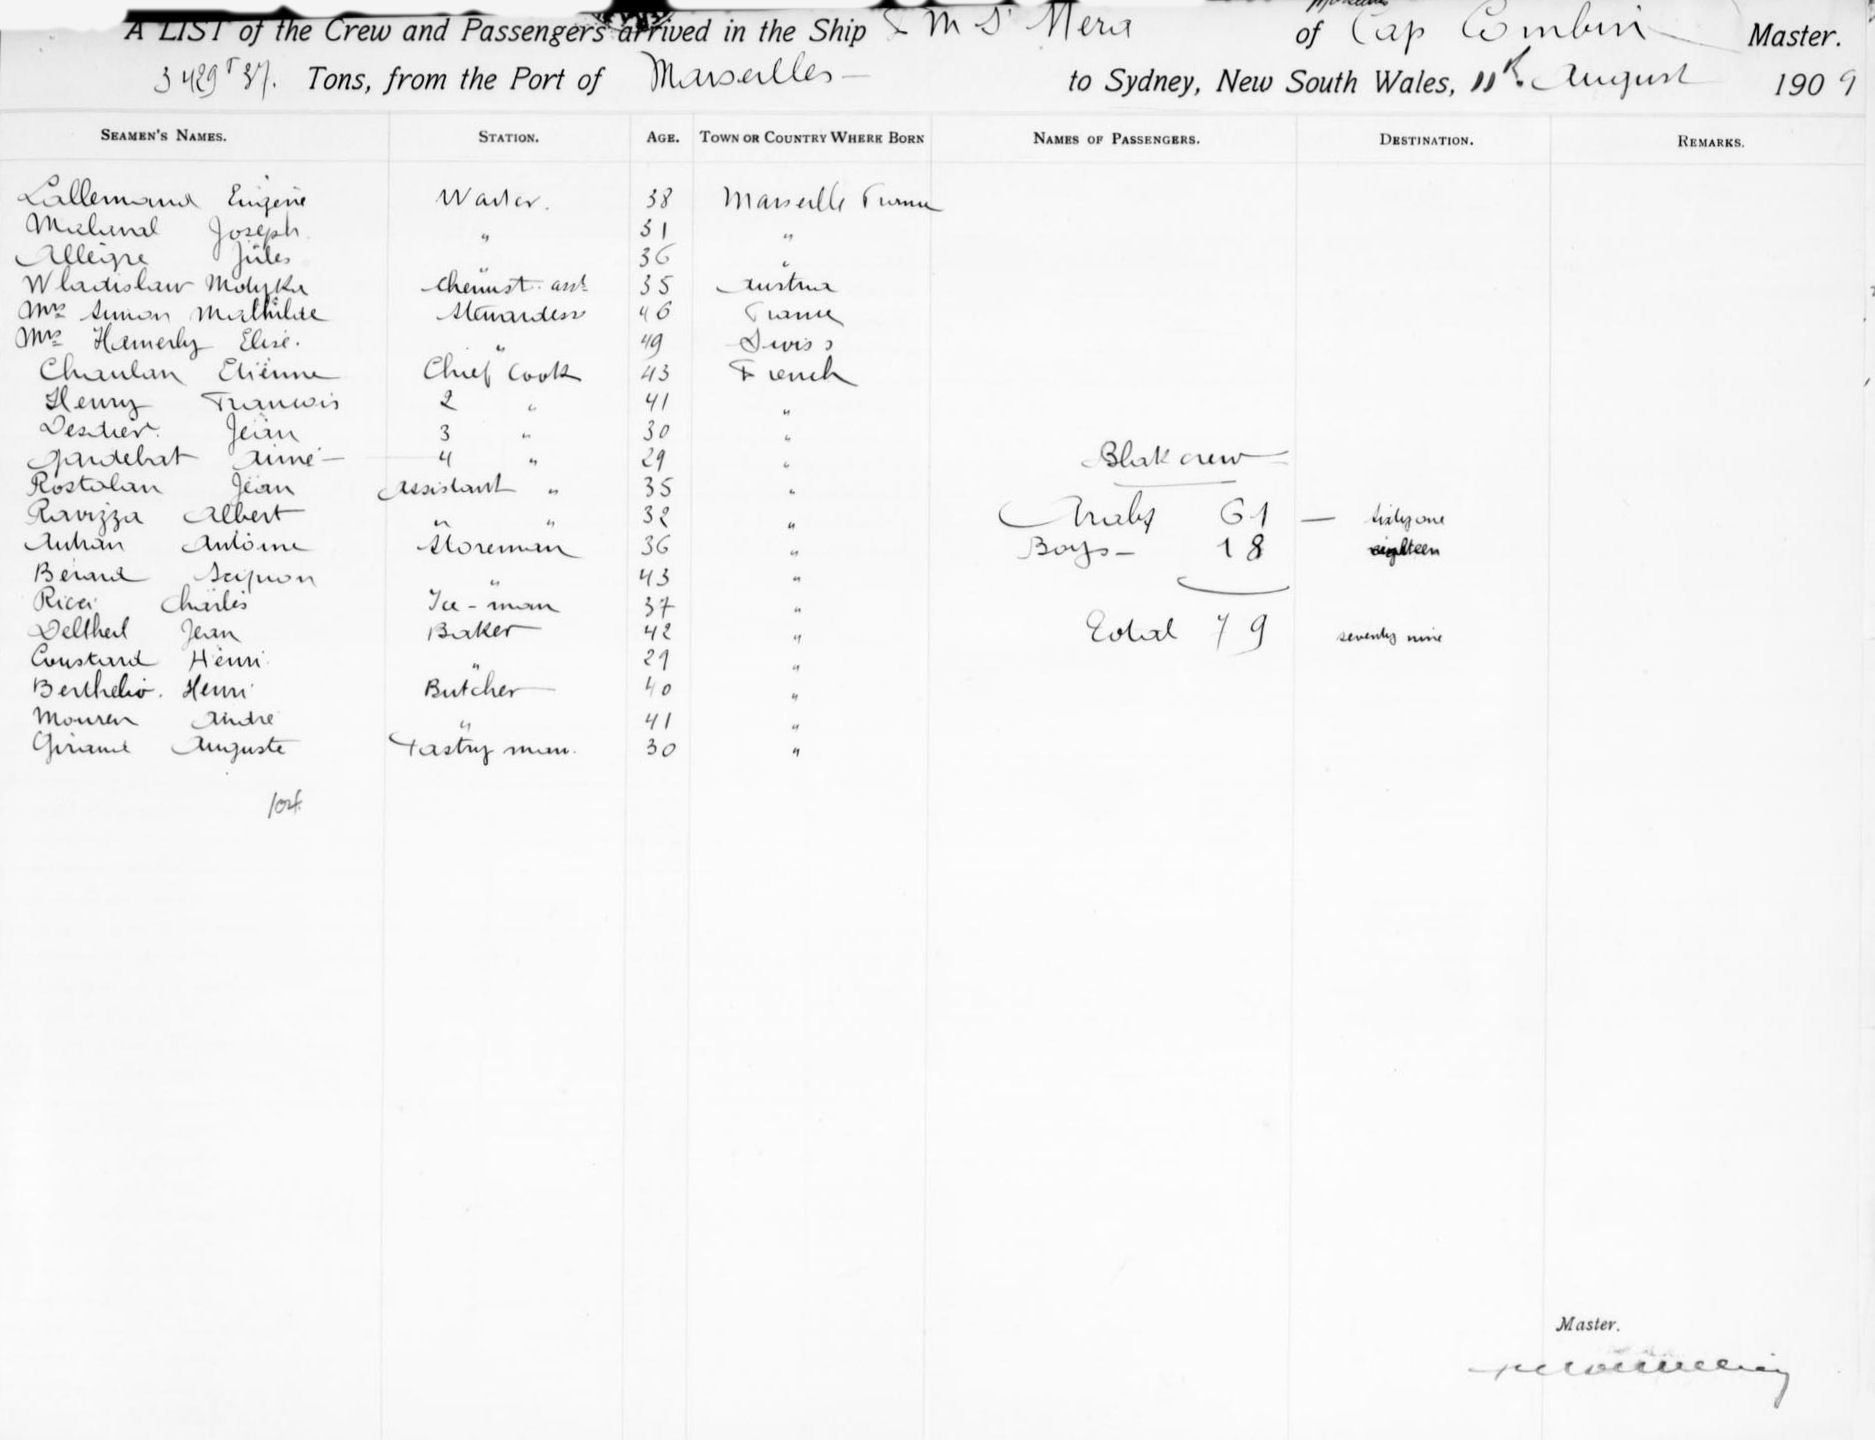 A LIST of the Crew and Passengers arrived in the Ship M S Nera of Cap Combin Master.
3429 T 37. Tons, from the Port of Marseilles — to Sydney, New South Wales, 11th August 1909
SEAMEN'S NAMES. STATION. AGE. TOWN OR COUNTRY WHERE BORN NAMES OF PASSENGERS. DESTINATION. REMARKS.
Lallemand Eugène Waiter. 38 Marseille France
Joseph. " 31 "
Allègre Jules " 36 "
Wladislaw Motyka Chemist asst 35 Austria
Mrs Simon Mathilde Stewardess 46 France
Mrs Hamerly Elise. " 49 Swiss
Chaulan Etienne Chief Cook 43 French
Henry Francois 2 " 41 "
Desdier. Jean 3 " 30 "
Gardebat Aimé — 4 " 29 " Blak crew
Rostolan Jean Assistant " 35 "
Ravizza Albert " " 32 " Arabs 61 — sixty one
Auhan Antoine Storeman 36 " Boys — 18 eighteen
Berard Scipion " 43 "
Ricci Charles Ice-man 37 "
Deltheil Jean Baker 42 " Total 79 seventy nine
Coustard Henri. " 29 "
Berthelio. Henri Butcher 40 "
Mouren André " 41 "
Giraud Auguste Pastry man. 30 "
104
Master.